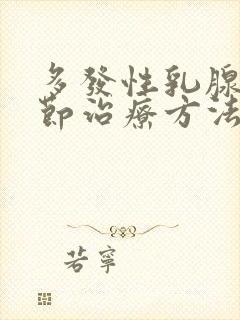 多發性乳腺
節治療方法
若寧